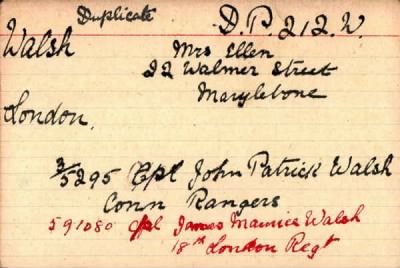 Duplicate
D.P. 212.W.
Walsh
Mrs Ellen
22 Walmer Street
Marylebone
London.
3/5295 Cpl John Patrick Walsh
Conn Rangers
591080 Cpl James Maurice Walsh
18th London Regt